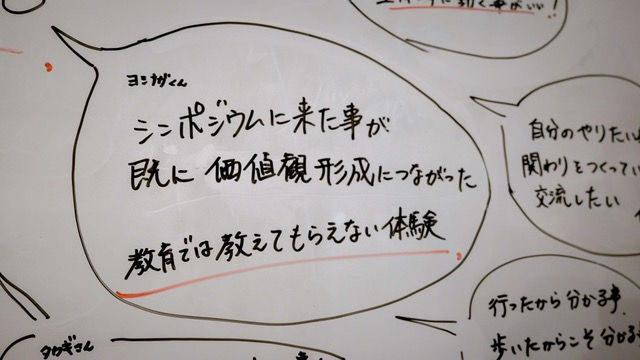 ヨシナガくん
シンポジウムに来た事が
既に価値観形成につながった
教育では教えてもらえない体験
自分のやりたい
関わりをつくってい
交流したい
行ったから分かる事.
歩いたからこそ分かる
タカギさん